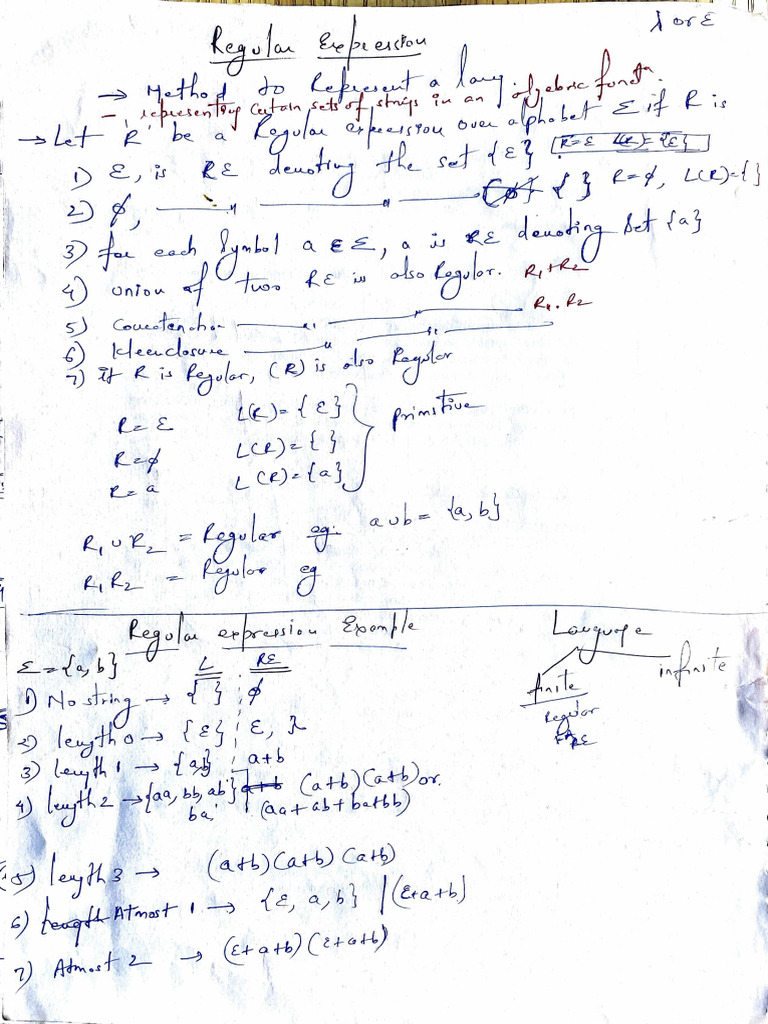 λ or ε
Regular Expression
→ Method to Represent a lang
- representing certain sets of strings in an algebric functn.
→ Let 'R' be a Regular expression over alphabet Σ if R is
1) ε, is RE denoting the set {ε} R=ε L(R)={ε}
2) φ, —— " —— " —— { } R=φ, L(R)={}
3) for each symbol a ∈ Σ, a is RE denoting set {a}
4) union of two RE is also Regular. R₁+R₂
5) Concatenation —— " —— " —— R₁.R₂
6) Kleenclosure —— " —— " ——
7) if R is Regular, (R) is also Regular
R=ε L(R)={ε}
R=φ L(R)={ } primitive
R=a L(R)={a}
R₁∪R₂ = Regular eg: a∪b = {a,b}
R₁R₂ = Regular eg
Regular expression Example
Language
Σ={a,b} L RE
finite infinite
1) No string → { } φ
Regular
RE
2) length 0 → {ε} ε, λ
3) length 1 → {a,b} a+b
4) length 2 → {aa, bb, ab, a+b (a+b)(a+b) or
ba} (aa+ab+ba+bb)
5) length 3 → (a+b)(a+b)(a+b)
6) Length Atmost 1 → {ε, a, b} | (ε+a+b)
7) Atmost 2 → (ε+a+b)(ε+a+b)